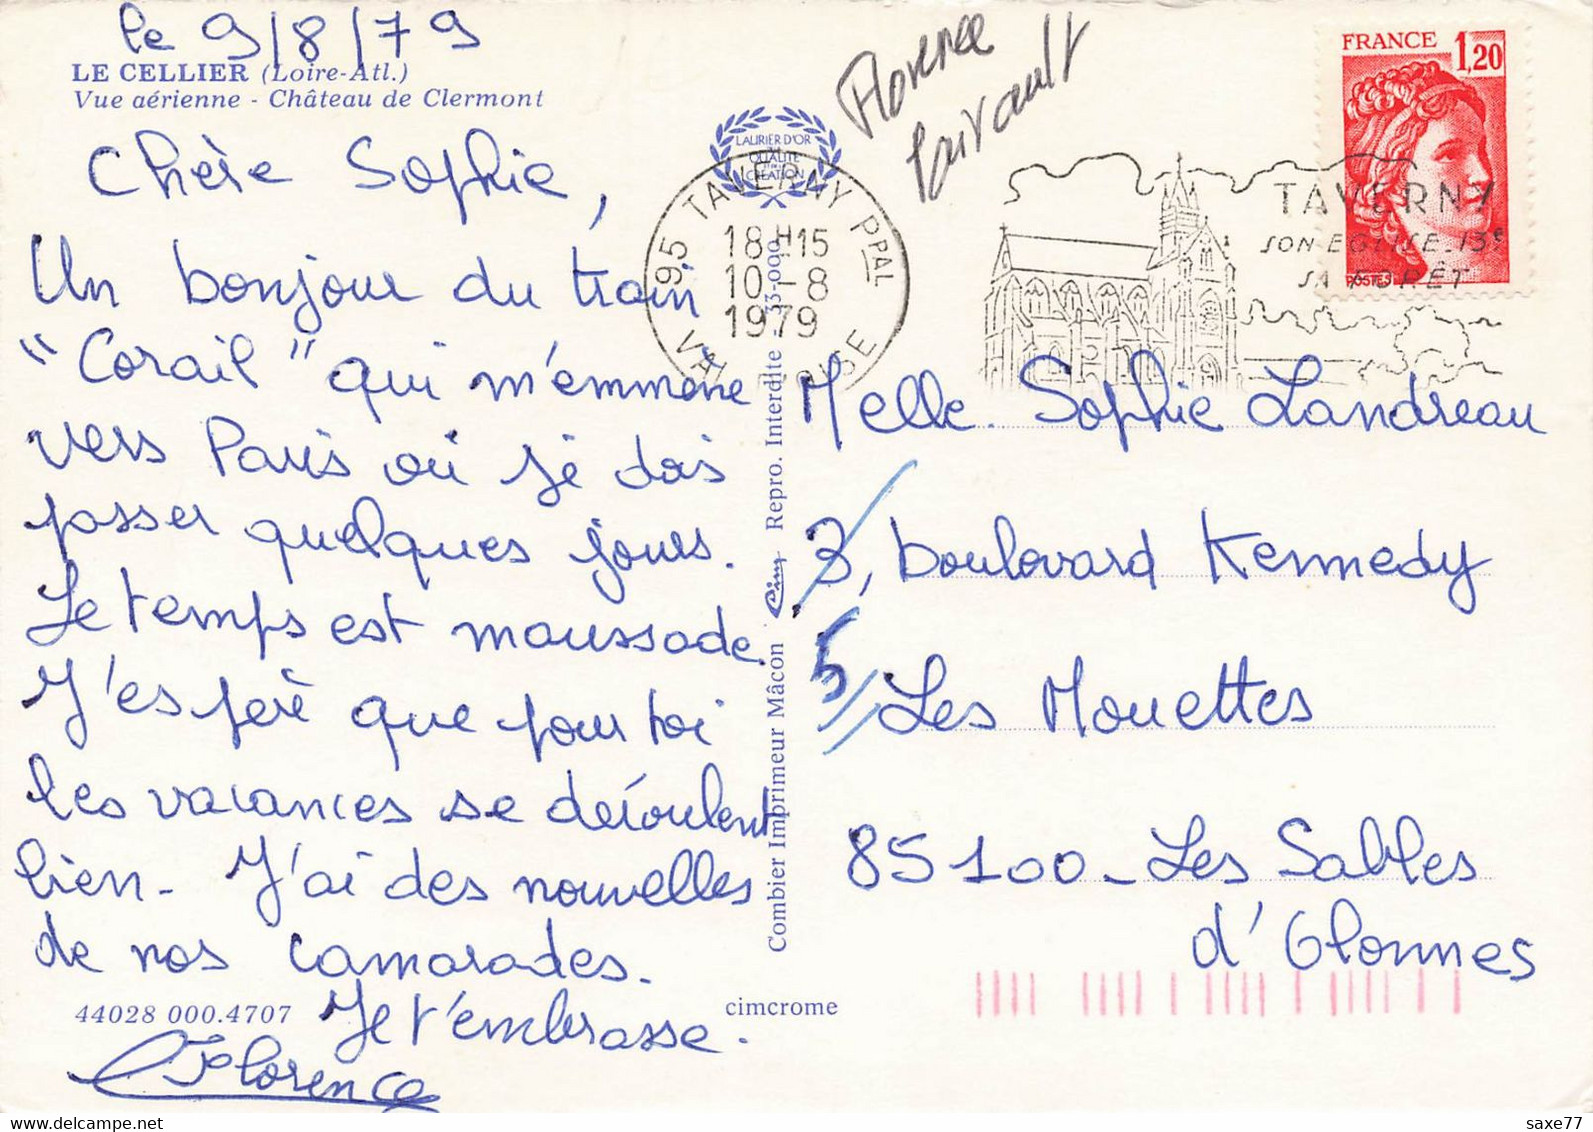 le 9/8/79
LE CELLIER (Loire-Atl.)
Vue aérienne - Château de Clermont
Chère Sophie,
Un bonjour du train
"Corail" qui m'emmène
vers Paris où je dois
passer quelques jours.
Le temps est maussade.
J'espère que pour toi
les vacances se déroulent
bien - J'ai des nouvelles
de nos camarades.
Je t'embrasse.
Florence
44028 000.4707
cimcrome
Combier Imprimeur Mâcon Cim Repro. Interdite - 73-000
LAURIER D'OR
QUALITÉ
CRÉATION
Florence
95 TAVERNY PPAL
18H15
10-8
1979
VAL OISE
TAVERNY
SON EGLISE. 13e
SA FORÊT
FRANCE 1,20
POSTES
Melle. Sophie Landreau
3, boulevard Kennedy
5 Les Mouettes
85100 - Les Sables
d'Olonnes
saxe77